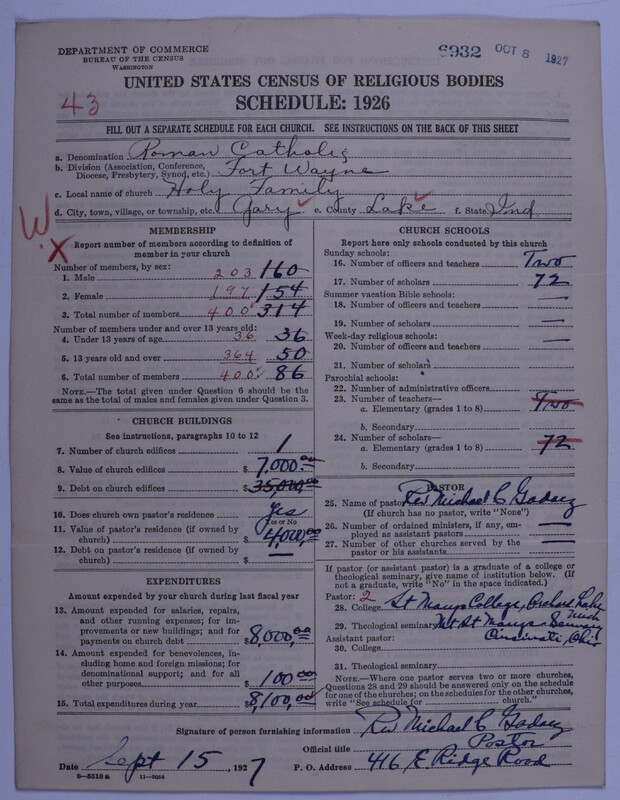 DEPARTMENT OF COMMERCE
BUREAU OF THE CENSUS
WASHINGTON
6932 OCT 8 1927
UNITED STATES CENSUS OF RELIGIOUS BODIES
SCHEDULE: 1926
43
FILL OUT A SEPARATE SCHEDULE FOR EACH CHURCH. SEE INSTRUCTIONS ON THE BACK OF THIS SHEET
a. Denomination Roman Catholic
b. Division (Association, Conference, Diocese, Presbytery, Synod, etc.) Fort Wayne
c. Local name of church Holy Family
d. City, town, village, or township, etc. Gary e. County Lake f. State Ind
W
X
MEMBERSHIP
Report number of members according to definition of
member in your church
Number of members, by sex:
1. Male 203 160
2. Female 197 154
3. Total number of members 400 314
Number of members under and over 13 years old:
4. Under 13 years of age 36 36
5. 13 years old and over 364 50
6. Total number of members 400 86
NOTE.—The total given under Question 6 should be the
same as the total of males and females given under Question 3.
CHURCH BUILDINGS
See instructions, paragraphs 10 to 12
7. Number of church edifices 1
8. Value of church edifices $7,000.00
9. Debt on church edifices $35,000.00
10. Does church own pastor's residence? Yes
Yes or No
11. Value of pastor's residence (if owned by
church) $4,000.00
12. Debt on pastor's residence (if owned by
church) $ —
EXPENDITURES
Amount expended by your church during last fiscal year
13. Amount expended for salaries, repairs,
and other running expenses; for im-
provements or new buildings; and for
payments on church debt $8,000.00
14. Amount expended for benevolences, in-
cluding home and foreign missions; for
denominational support; and for all
other purposes $100.00
15. Total expenditures during year $8,100.00
CHURCH SCHOOLS
Report here only schools conducted by this church
Sunday schools:
16. Number of officers and teachers Two
17. Number of scholars 72
Summer vacation Bible schools:
18. Number of officers and teachers —
19. Number of scholars —
Week-day religious schools:
20. Number of officers and teachers —
21. Number of scholars
Parochial schools:
22. Number of administrative officers
23. Number of teachers—
a. Elementary (grades 1 to 8) Two
b. Secondary
24. Number of scholars—
a. Elementary (grades 1 to 8) 72
b. Secondary
PASTOR
25. Name of pastor Rev Michael C
(If church has no pastor, write "None")
26. Number of ordained ministers, if any, em-
ployed as assistant pastors —
27. Number of other churches served by the
pastor or his assistants —
If pastor (or assistant pastor) is a graduate of a college or
theological seminary, give name of institution below. (If
not a graduate, write "No" in the space indicated.)
Pastor: 2
28. College St Marys College, Orchard Lake
Mich
29. Theological seminary Mt St Marys Seminary
Cincinati, Ohio
Assistant pastor:
30. College
31. Theological seminary
NOTE.—Where one pastor serves two or more churches,
Questions 28 and 29 should be answered only on the schedule
for one of the churches; on the schedules for the other churches,
write "See schedule for church."
Signature of person furnishing information Rev Michael C
Official title Pastor
Date Sept 15, 1927 P. O. Address 416 E. Ridge Road
8—5518 a 11—9054